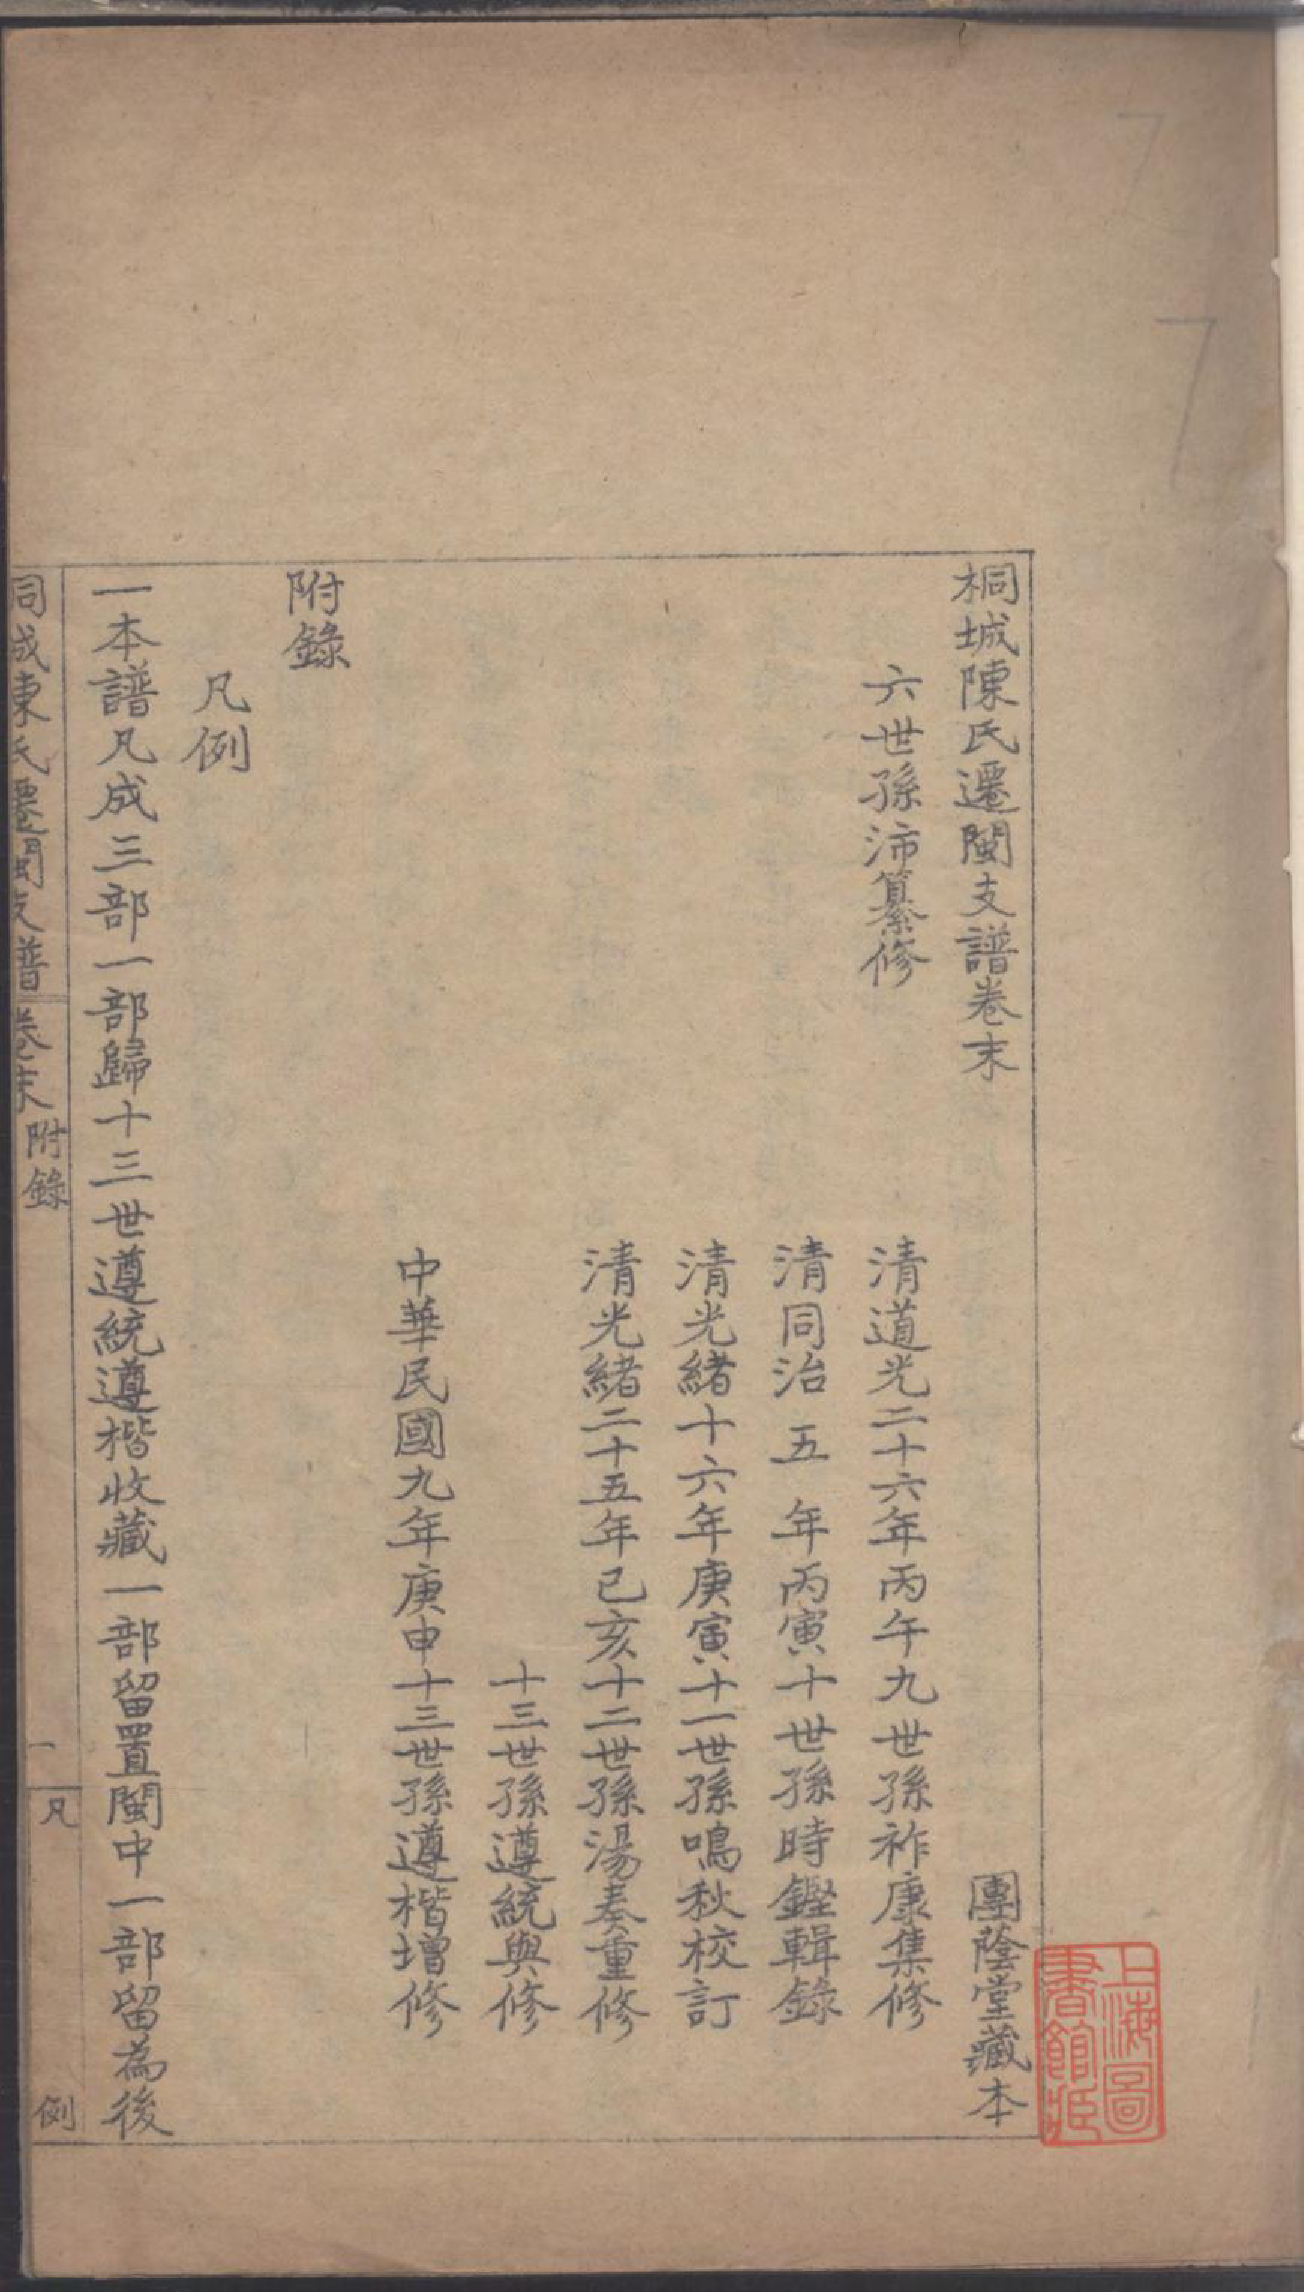 桐城陳氏遷閩支譜卷末
團蔭堂藏本
六世孫沛纂修
清道光二十六年丙午九世孫祚康集修
清同治五年丙寅十世孫時鏗輯錄
清光緒十六年庚寅十一世孫鳴秋校訂
清光緒二十五年己亥十二世孫湯奏重修
十三世孫遵統與修
中華民國九年庚申十三世孫遵楷增修
附錄
凡例
一本譜凡成三部一部歸十三世遵統遵楷收藏一部留置閩中一部留為後
桐城陳氏遷閩支譜 卷末 附錄 一 凡例
上海圖書館藏
7
7